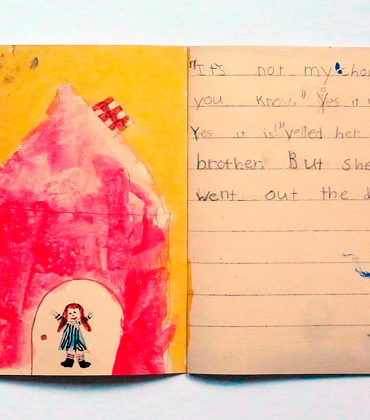 "It's not my
you know." Yes it
Yes it is!" yelled her
brother. But she
went out the